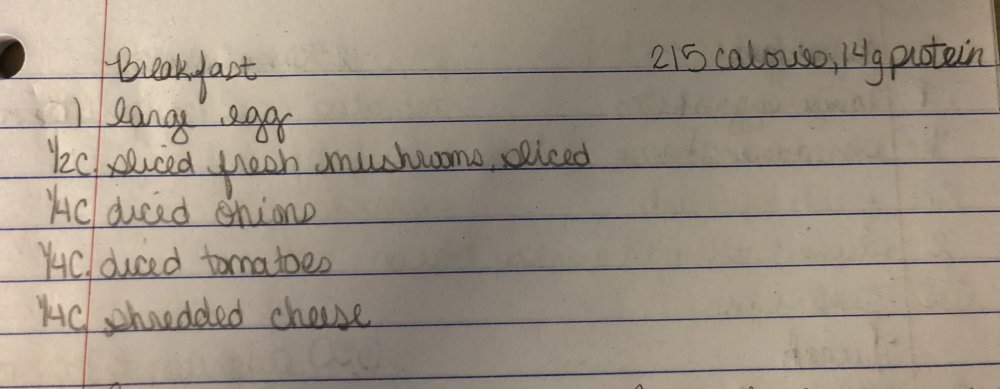 Breakfast 215 calories, 14g protein
1 large egg
1/2C. sliced fresh mushrooms, sliced
1/4C diced onions
1/4C. diced tomatoes
1/4C shredded cheese